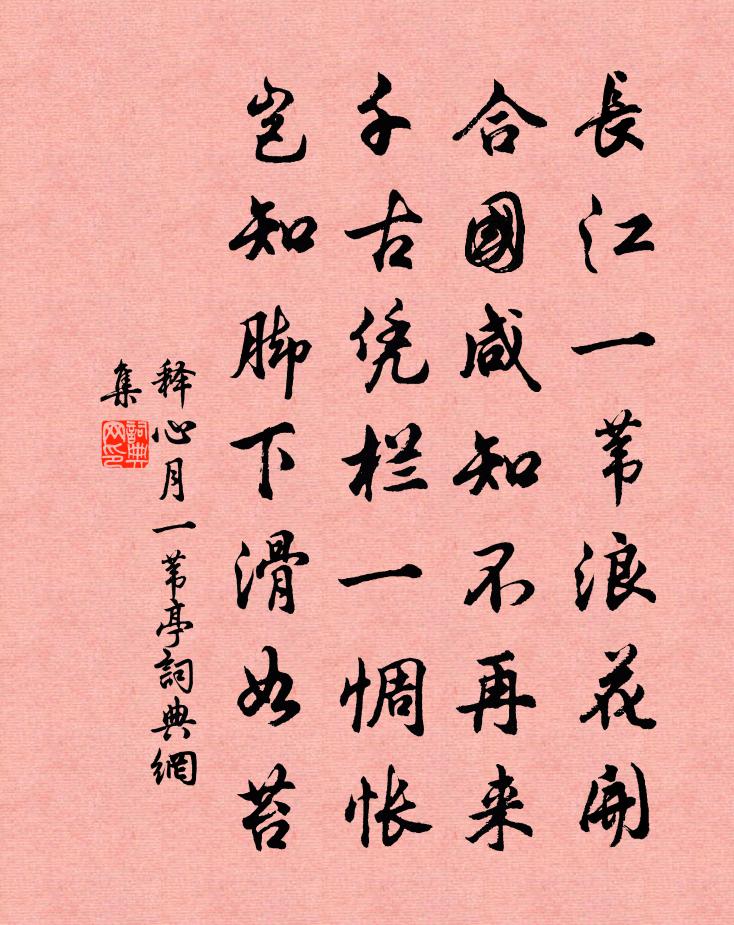 長江一苇浪花開
合國咸知不再来
千古凭栏一惆怅
岂知脚下滑如苔
释心月一苇亭詞典網
集
詞典網印